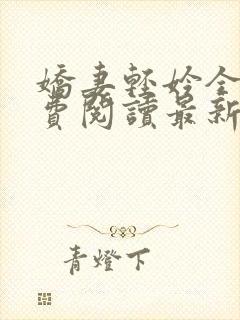 嬌妻輕妗全
費閱讀最新
青燈下